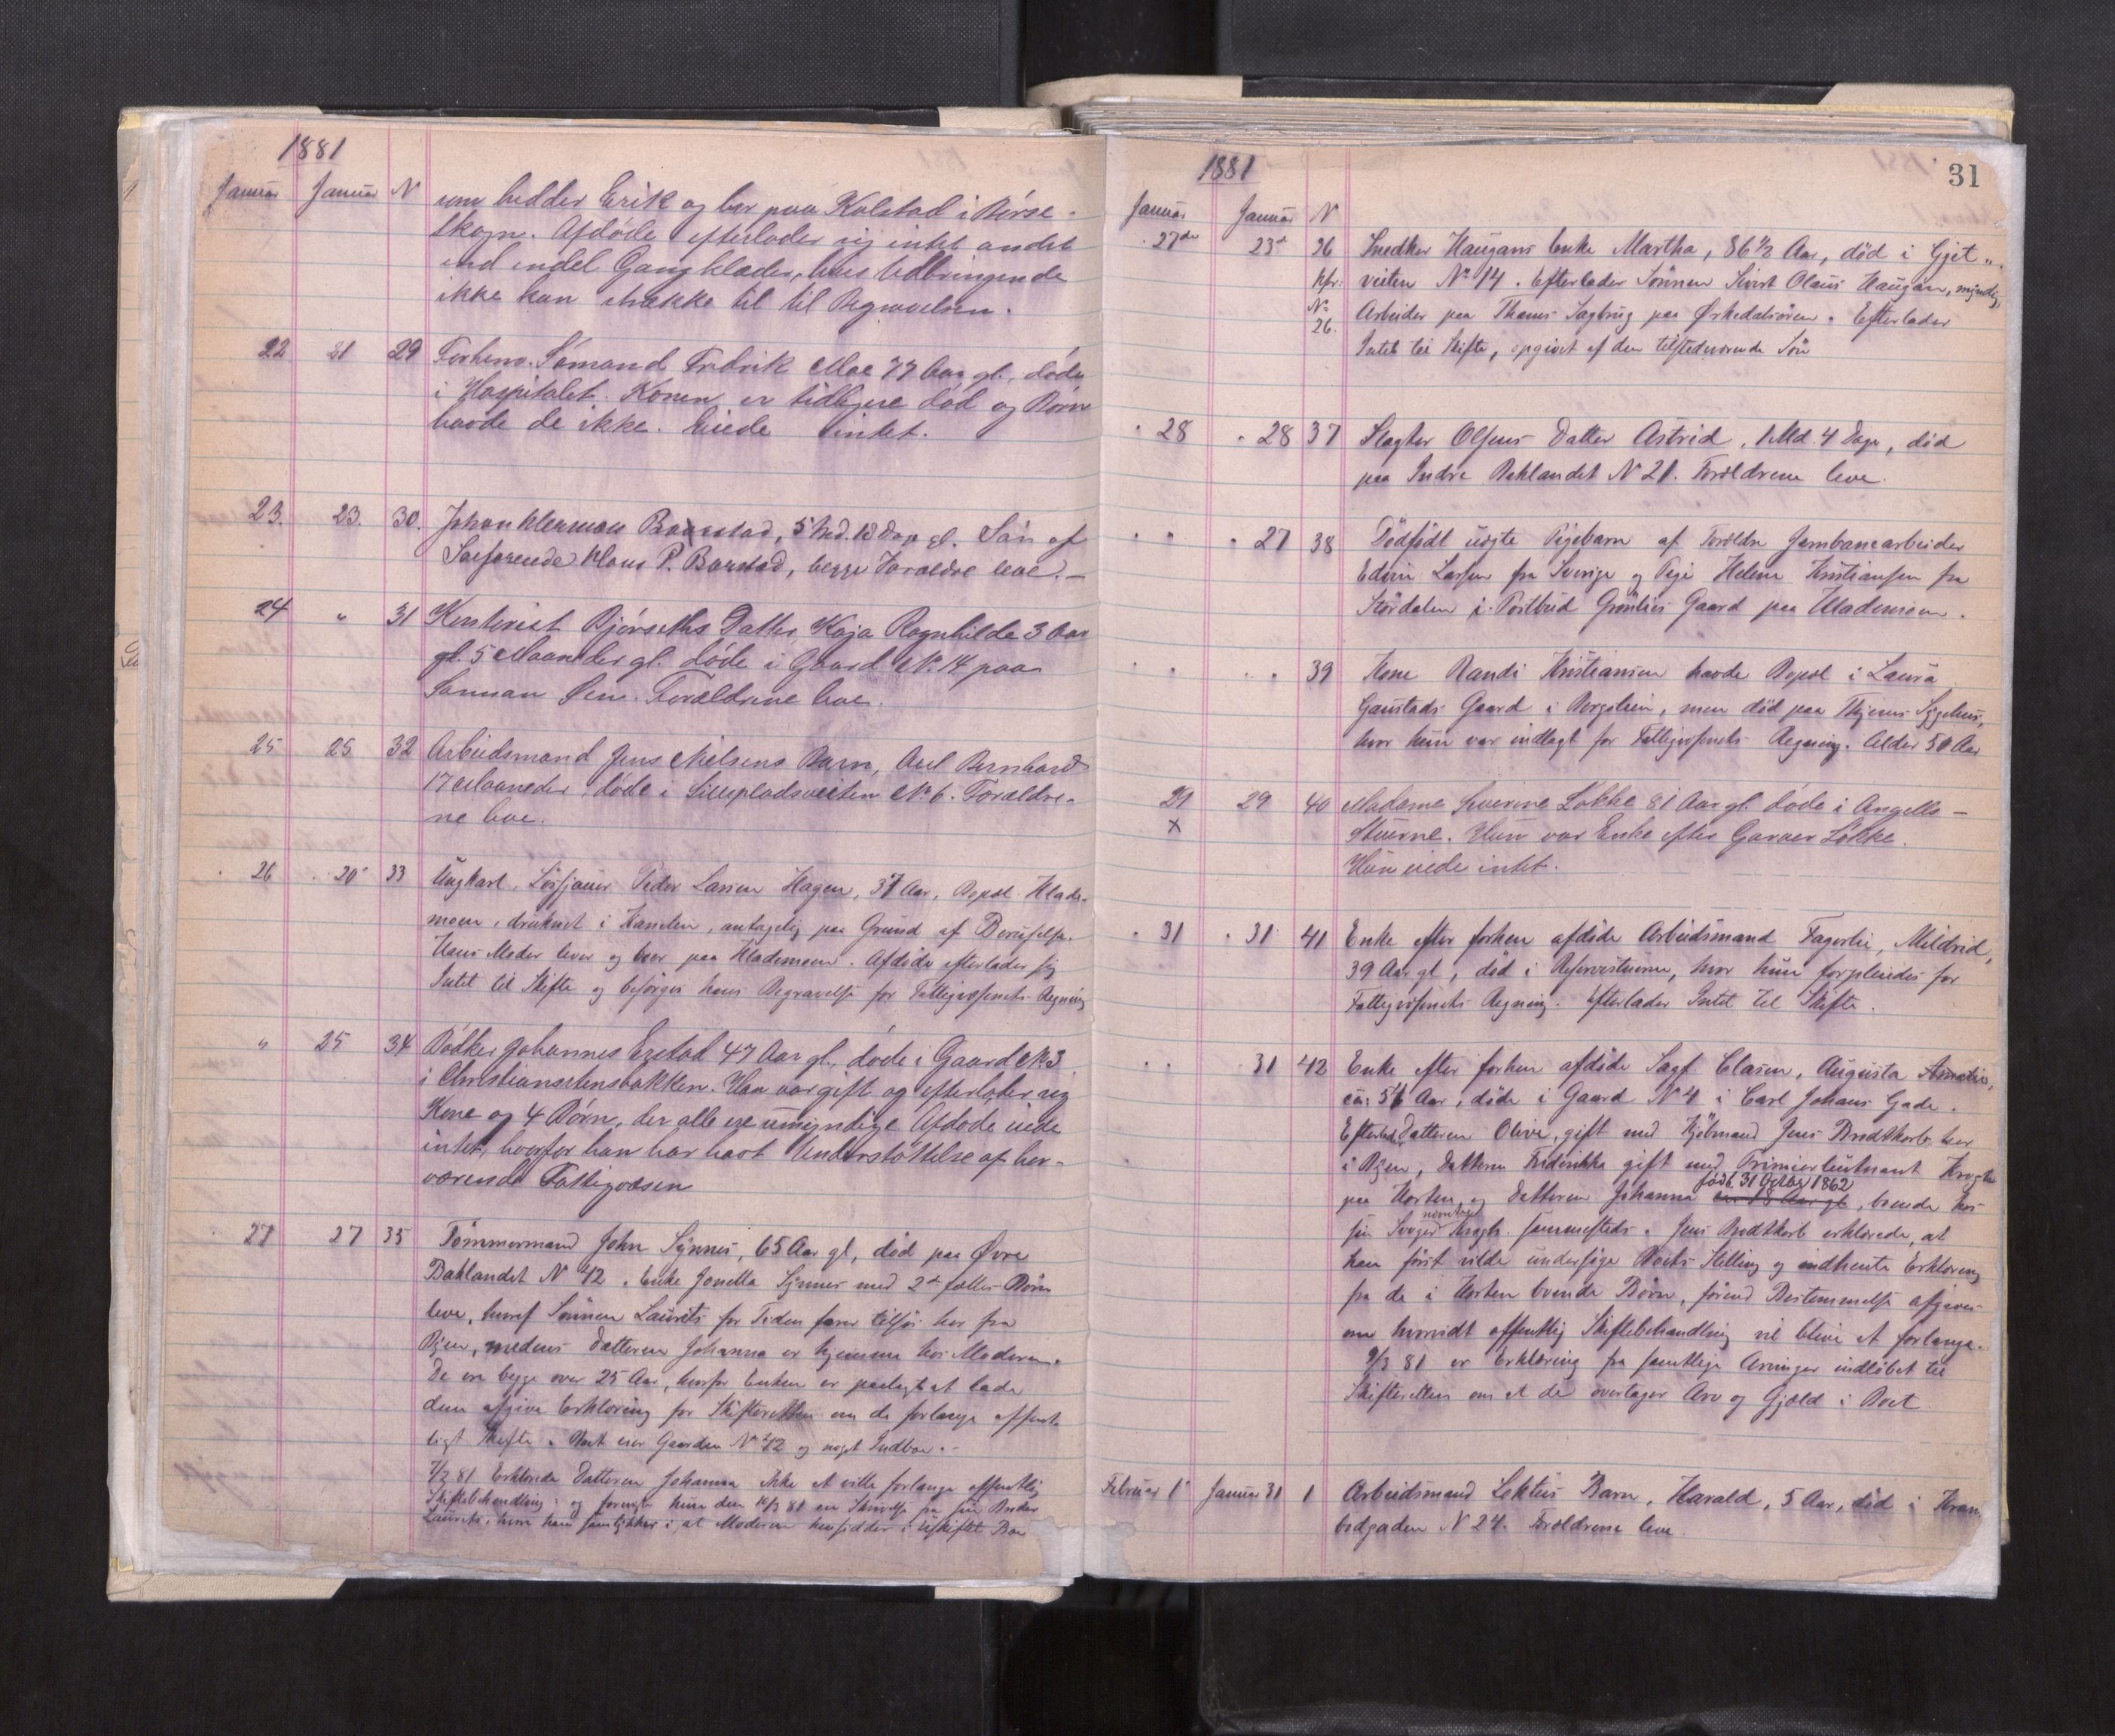 1881
Januar Januar N
som hedder Erik og bor paa Kolstad i Børse-
skogn. Afdøde efterlader sig intet andet
end endel Gangklæder, hvis Udbringende
ikke kan strække til til Begravelsen.
22 21 29 Forhenv. Sømand Fredrik Moe 77 Aar gl., døde
i Hospitalet. Konen er tidligere død og Børn
havde de ikke. Eiede intet.
23. 23. 30. Johan Herman Baarstad, 5 Md. 13 Dage gl. Søn af
Søfarende Klaus P. Barstad, begge Forældre leve.-
24 " 31 Kontorist Bjørseths Datter Kaja Ragnhilde 3 Aar
gl. 5 Maaneder gl. døde i Gaard No. 14 paa
Sannan Øen. Forældrene leve.
25 25 32 Arbeidsmand Jens Nielsens Barn, Axel Bernhard
17 Maaneder, døde i Lillepladsveiten No 6. Forældre-
ne leve.
26 20 33 Ungkarl, Løsgjænger Peder Larsen Hagen, 37 Aar, Bopæl Hlade-
moen, druknet i Kanalen, antagelig paa Grund af Beruselse.
Hans Moder lever og boer paa Hlademoen. Afdøde efterlader sig
Intet til Skifte og besørges hans Begravelse for Fattigvæsenets Regning
" 25 34 Bødker Johannes Egstad 47 Aar gl., døde i Gaard No 3
i Christianstensbakken. Han var gift og efterlader sig
Kone og 4 Børn, der alle ere umyndige. Afdøde eiede
intet, hvorfor han har havt Understøttelse af her-
værende Fattigvæsen
27 27 35 Tømmermand John Synnes, 65 Aar gl, død paa Øvre
Baklandet N 42. Enke Jonetta Synnes med 2de fælles Børn
leve, hvoraf Sønnen Laurits for Tiden farer tilsjøs her fra
Byen, medens Datteren Johanna er hjemme hos Moderen.
De ere begge over 25 Aar, hvorfor Enken er paalagt at lade
dem afgive Erklæring for Skifteretten om de forlange offent-
ligt Skifte. Boet eier Gaarden No 42 og noget Indbo.-
7/2 81 Erklærede Datteren Johanna ikke at ville forlange offentlig
Skiftebehandling og foreviste hun den 10/3 81 en Skrivelse fra sin Broder
Laurits, hvori han samtykker i, at Moderen hensidder i uskiftet Bo
1881 31
Januar Januar N
27de 23d 36 Snedker Haugans Enke Martha, 86 1/2 Aar, død i Gjet-
kfr: veiten No 14. Efterlader Sønnen Sivert Olaus Haugan, myndig,
No Arbeider paa Thams Sagbrug paa Ørkedalsøren. Efterlader
26. Intet til Skifte, opgivet af den tilstedeværende Søn
" 28 " 28 37 Slagter Olsens Datter Astrid, 1 Md. 4 Dage, død
paa Indre Baklandet N 21. Forældrene leve.
" " " 27 38 Dødfødt uægte Pigebarn af Forældre Jernbanearbeider
Edvin Larsen fra Sverige og Pige Helene Kristiansen fra
Stördalen i Postbud Grønlies Gaard paa Hlademoen.
" " " " 39 Kone Randi Kristiansen havde Bopæl i Laura
Gaustads Gaard i Bergslien, men død paa Byens Sygehus,
hvor hun var indlagt for Fattigvæsenets Regning. Alder 50 Aar
29 29 40 Madame Severine Løkke 81 Aar gl. døde i Angells-
x Stuerne. Hun var Enke efter Garver Løkke.
Hun eiede intet.
" 31 " 31 41 Enke efter forhen afdøde Arbeidsmand Fagerlie, Mildrid,
39 Aar gl, død i Reservestuerne, hvor hun forpleiedes for
Fattigvæsenets Regning. Efterlader Intet til Skifte.
" " 31 42 Enke efter forhen afdøde Sagf. Clasen, Augusta Amalie,
ca: 51 Aar, døde i Gaard N 4 i Carl Johans Gade.
Efterlod Datteren Olive, gift med Kjøbmand Jens Brodtkorb her
i Byen, Datteren Frederikke gift med Premierlieutnant Krogh
paa Horten, og Datteren Johanna født 31 Octbr 1862, boende hos
sin Svoger nævnte Krogh sammesteds. Jens Brodtkorb erklærede, at
han først vilde undersøge Boets Stilling og indhente Erklæring
fra de i Horten boende Børn, førend Bestemmelse afgives
om hvorvidt offentlig Skiftebehandling vil blive at forlange.
9/3 81 er Erklæring fra samtlige Arvinger indløbet til
Skifteretten om at de overtager Arv og Gjæld i Boet.
Februar 1 Januar 31 1 Arbeidsmand Lektus Barn, Harald, 5 Aar, død i Kram-
bodgaden N 24. Forældrene leve